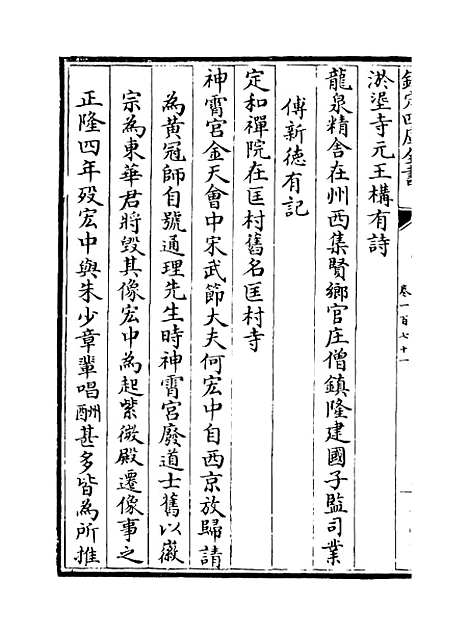 欽定四庫全書
卷一百七十一
洪塈寺元王構有詩
龍泉精舍在州西集賢鄉官庄僧鎮隆建國子監司業
傅新德有記
定和禪院在匡村舊名匡村寺
神霄宮金天會中宋武節大夫何宏中自西京放歸請
為黃冠師自號通理先生時神霄宮廢道士舊以徽
宗為東華君將毀其像宏中為起紫微殿遷像事之
正隆四年歿宏中與朱少章輩唱酬甚多皆為所推